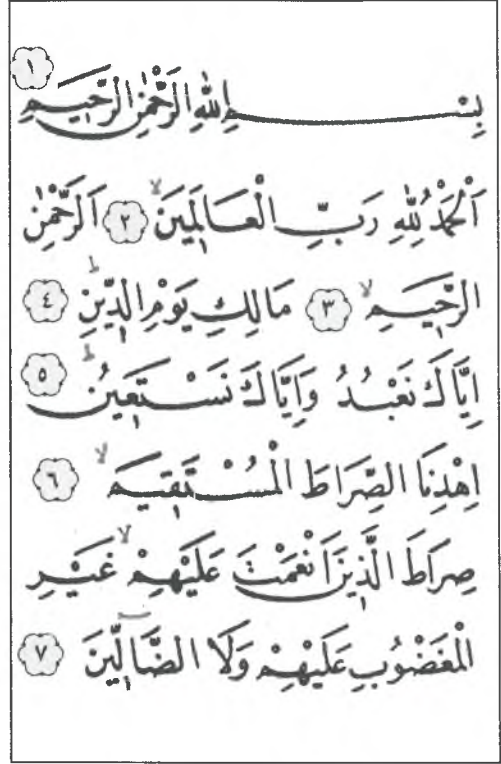 بِسْمِ اللهِ الرَّحْمٰنِ الرَّحِيمِ ١
اَلْحَمْدُ لِلّٰهِ رَبِّ الْعَالَمِينَۙ ٢ اَلرَّحْمٰنِ
الرَّحِيمِۙ ٣ مَالِكِ يَوْمِ الدِّينِۜ ٤
اِيَّاكَ نَعْبُدُ وَاِيَّاكَ نَسْتَعِينُۜ ٥
اِهْدِنَا الصِّرَاطَ الْمُسْتَقِيمَۙ ٦
صِرَاطَ الَّذِينَ اَنْعَمْتَ عَلَيْهِمْۙ غَيْرِ
الْمَغْضُوبِ عَلَيْهِمْ وَلَا الضَّٓالِّينَ ٧